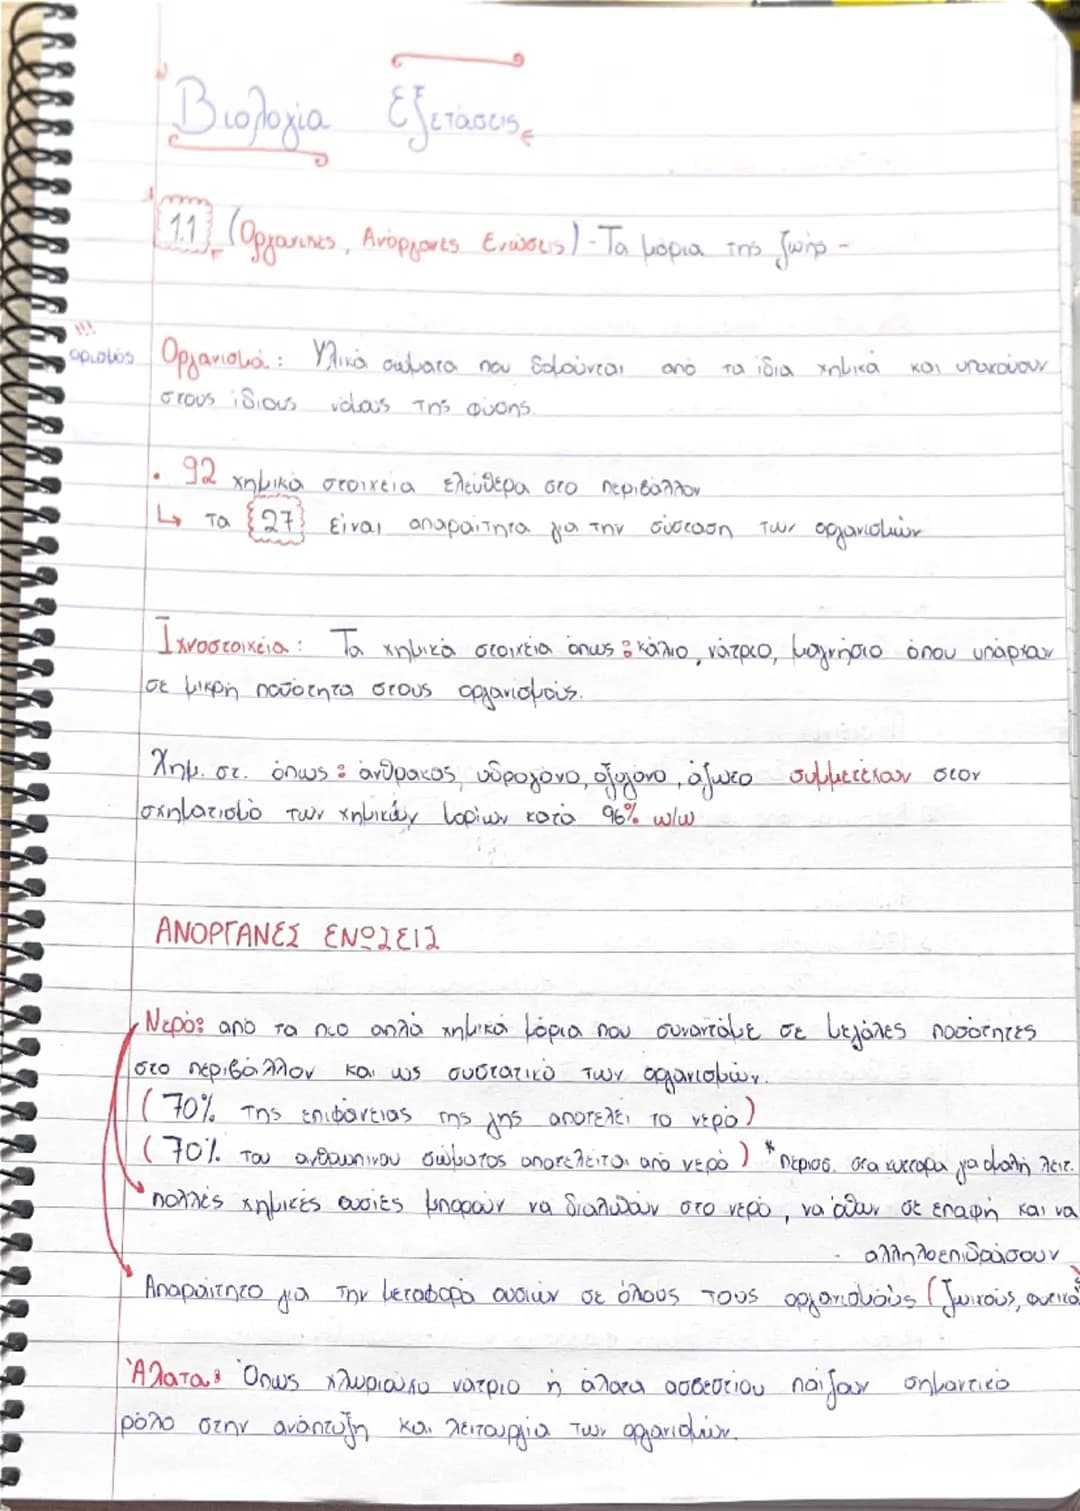 Βιολογία Εξετάσεις
1.1 (Οργανικές, Ανόργανες Ενώσεις) - Τα μόρια της ζωής -
!!!
ορισμός Οργανισμοί: Υλικά σώματα που δομούνται από τα ίδια χημικά και υπακούουν
στους ίδιους νόμους της φύσης.
• 92 χημικά στοιχεία ελεύθερα στο περιβάλλον
↳ Τα 27 είναι απαραίτητα για την σύσταση των οργανισμών
Ιχνοστοιχεία: Τα χημικά στοιχεία όπως: κάλιο, νάτριο, μαγνήσιο όπου υπάρχουν
σε μικρή ποσότητα στους οργανισμούς.
Χημ. στ. όπως: άνθρακας, υδρογόνο, οξυγόνο, άζωτο συμμετέχουν στον
σχηματισμό των χημικών μορίων κατά 96% w/w
ΑΝΟΡΓΑΝΕΣ ΕΝΩΣΕΙΣ
Νερό: από τα πιο απλά χημικά μόρια που συναντάμε σε μεγάλες ποσότητες
στο περιβάλλον και ως συστατικό των οργανισμών.
(70% της επιφάνειας της γης αποτελεί το νερό)
(70% του ανθρωπινου σώματος αποτελείται από νερό) * περισσ. στα κυτταρα για ομαλή λειτ.
πολλές χημικές ουσίες μπορούν να διαλυθούν στο νερό, να έλθουν σε επαφή και να
- αλληλοεπιδράσουν
Απαραίτητο για την μεταφορά ουσιών σε όλους τους οργανισμούς (ζωικούς, φυτικο
Άλατα: Όπως χλωριούχο νάτριο ή άλατα ασβεστίου παίζουν σημαντικό
ρόλο στην ανάπτυξη και λειτουργία των οργανισμών.